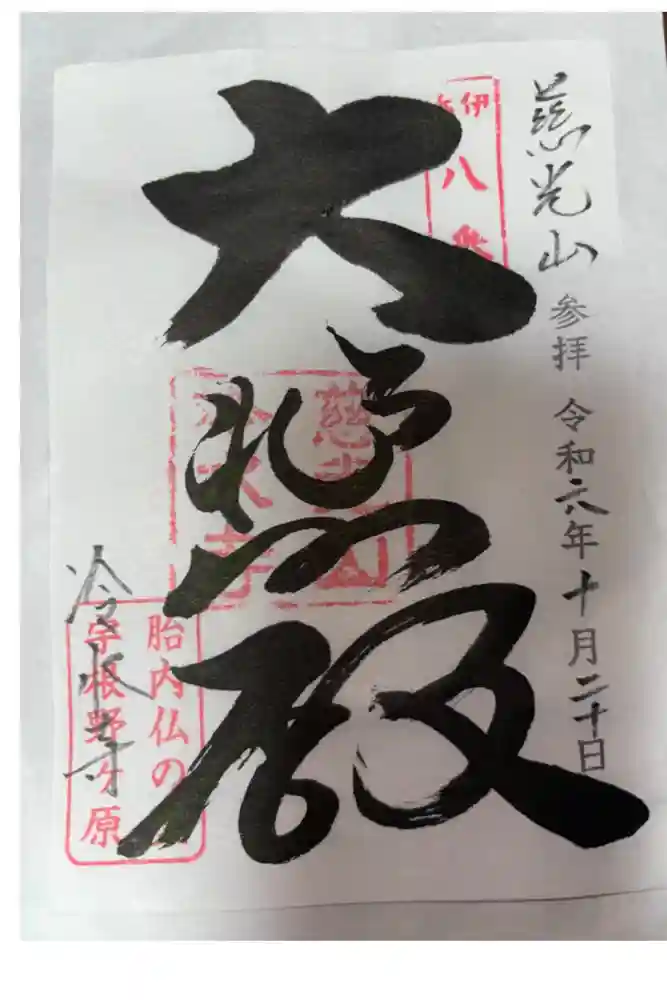 慈光山 参拝 令和六年十月二十日
八
大悲殿
慈光山
冷水寺
胎内仏の
宇根野ヶ原